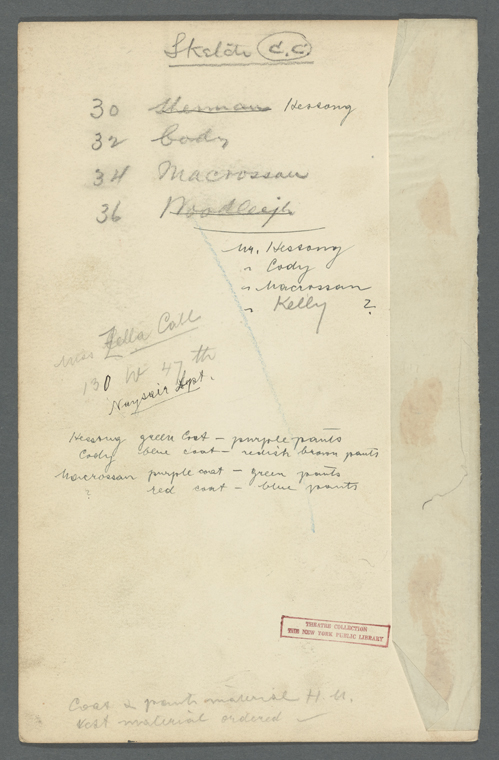 Sketch C.C.
30 Sherman Hessong
32 Cody
34 Macrossan
36 Woodleigh
Mr. Hessong
" Cody
" Macrossan
" Kelly ?
Miss Zella Call
130 W 47 th
Apt.
Hessong green coat - purple pants
Cody blue coat - redish brown pants
Macrossan purple coat - green pants
? red coat - blue pants
THEATRE COLLECTION
THE NEW YORK PUBLIC LIBRARY
Coat & pants material H.M.
Vest material ordered ✓